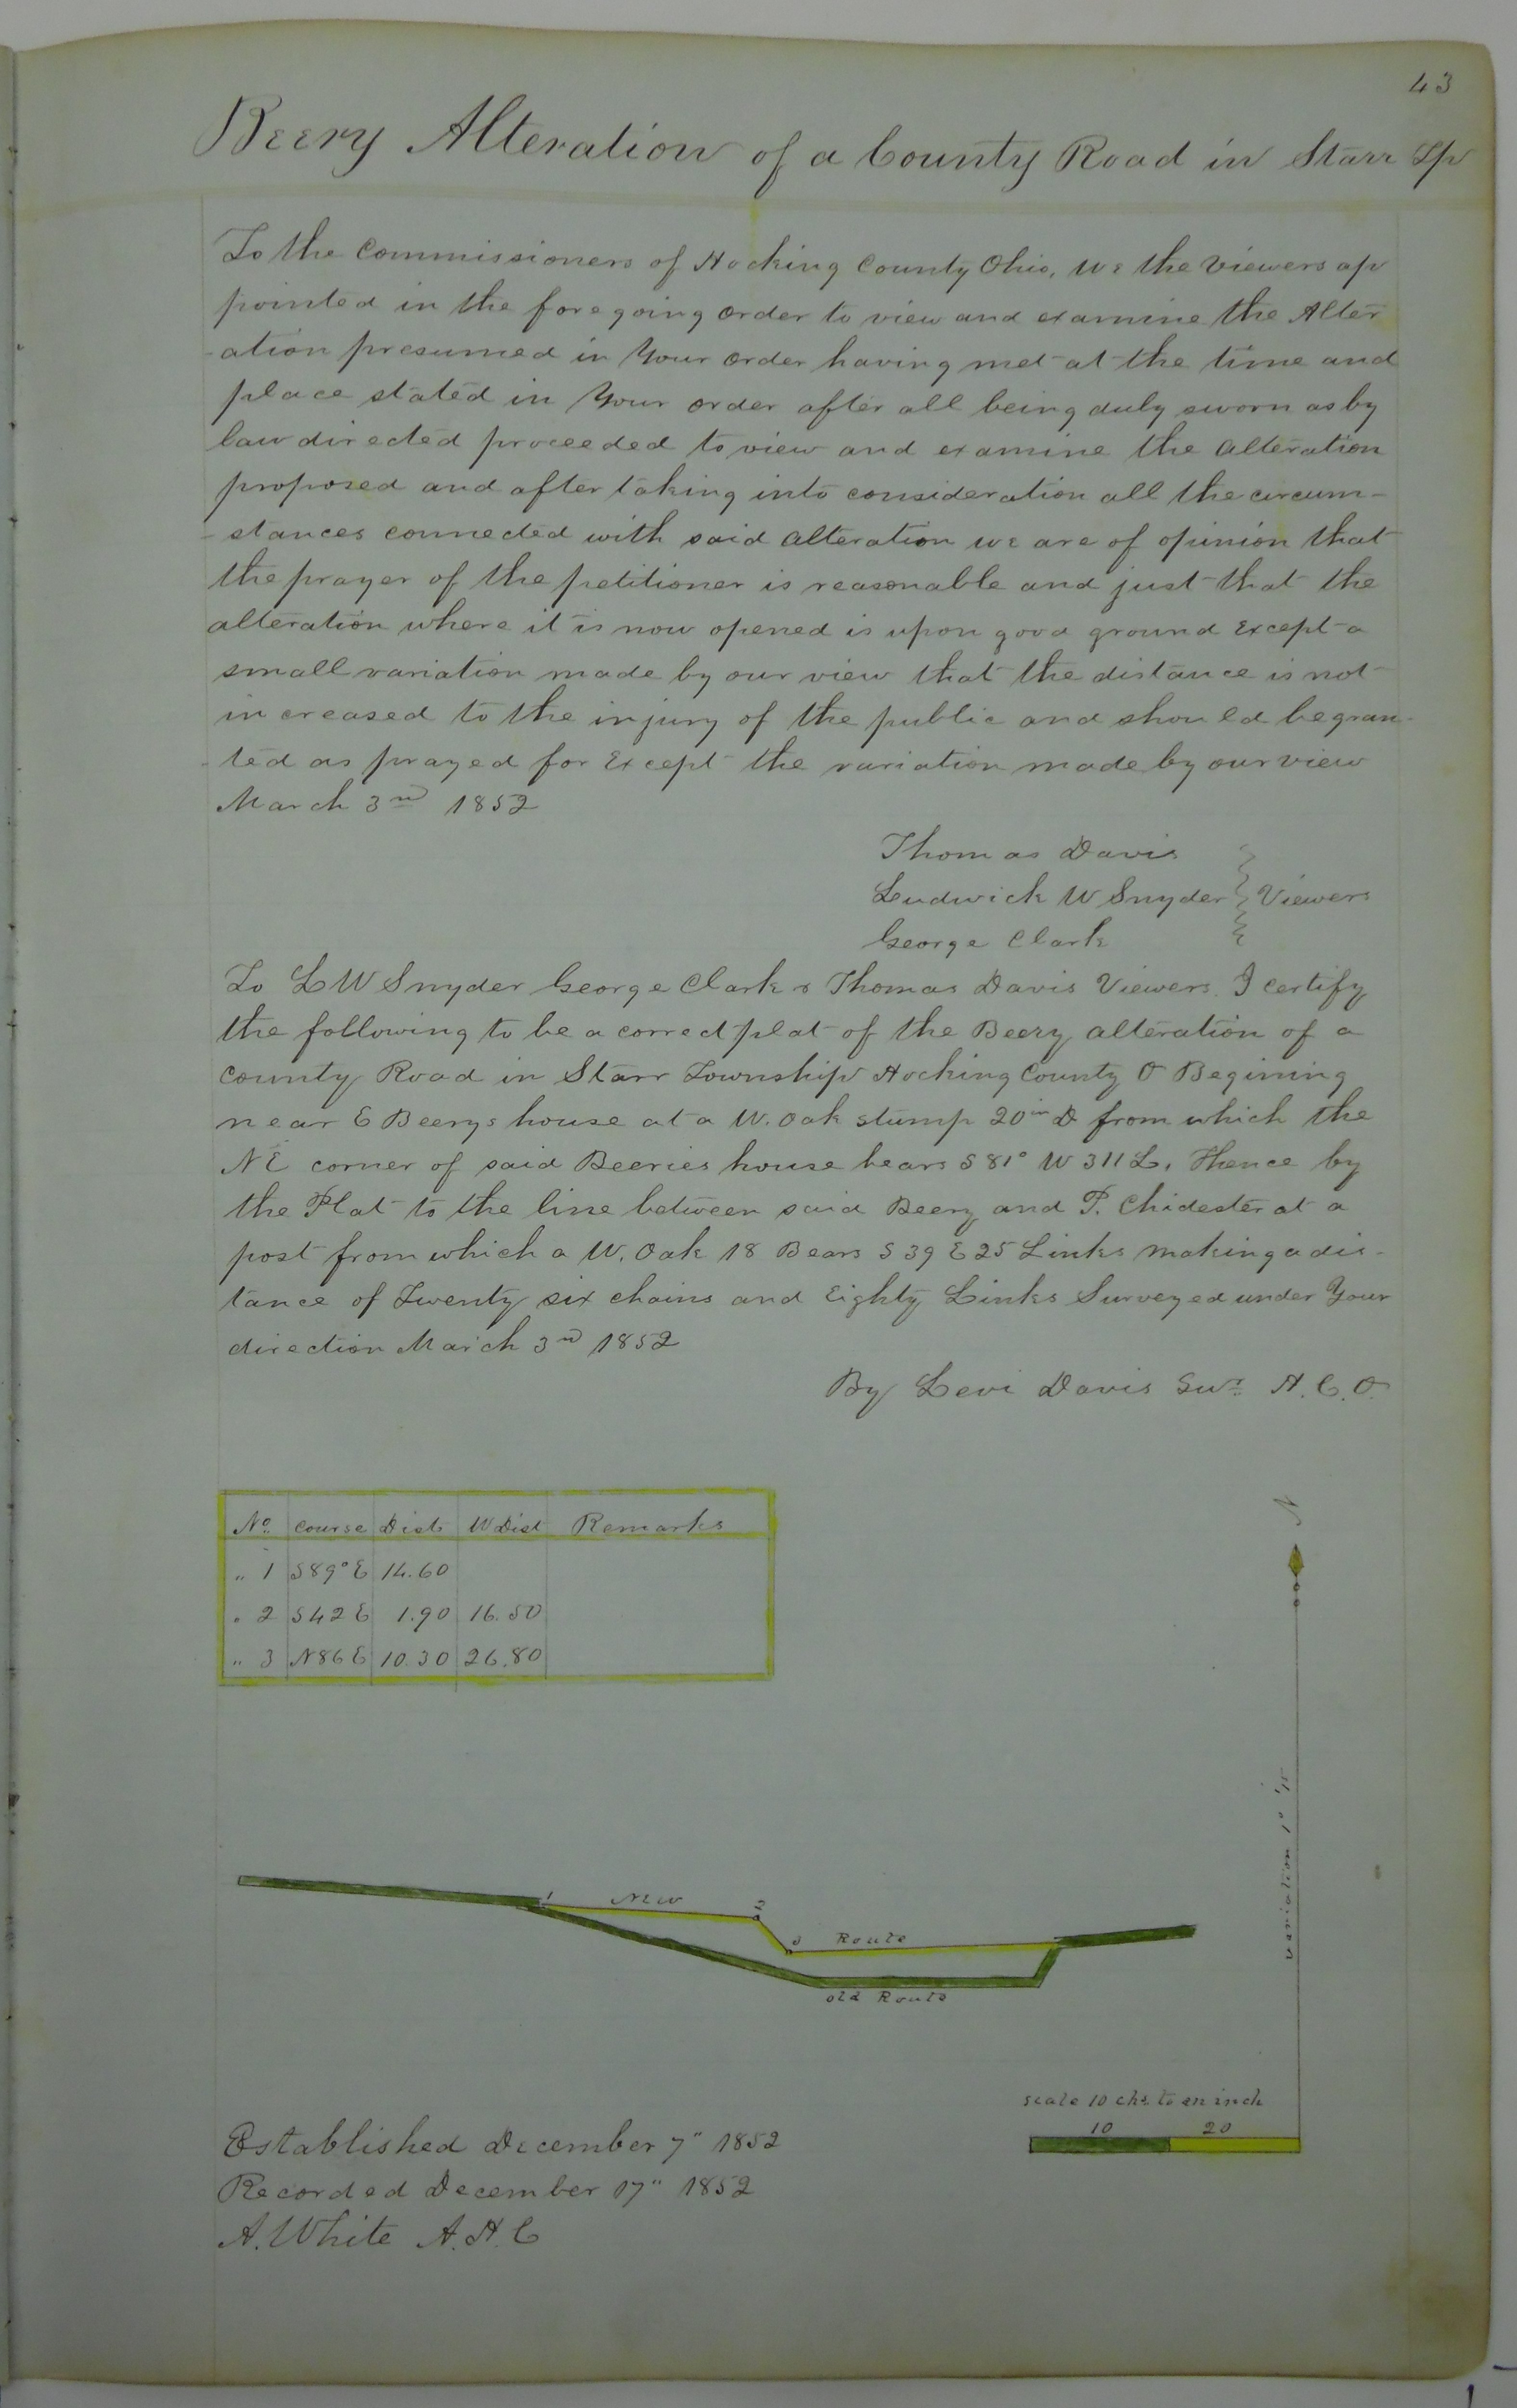 43
Beery Alteration of a County Road in Starr Tp
To the Commissioners of Hocking County Ohio, We the Viewers ap
pointed in the foregoing order to view and examine the Alter
-ation presumed in Your order having met at the time and
place stated in Your order after all being duly sworn as by
law directed proceeded to view and examine the alteration
proposed and after taking into consideration all the circum-
-stances connected with said alteration we are of opinion that
the prayer of the petitioner is reasonable and just that the
alteration where it is now opened is upon good ground Except a
small variation made by our view that the distance is not
increased to the injury of the public and should be gran-
-ted as prayed for Except the variation made by our view
March 3rd 1852
Thomas Davis
Ludwick W Snyder } Viewers
George Clark
To L W Snyder George Clark & Thomas Davis Viewers. I certify
the following to be a correct plat of the Beery alteration of a
county Road in Starr Township Hocking County O Begining
near E Beerys house at a W. Oak stump 20in D from which the
NE corner of said Beeries house bears S 81° W 311 L. Thence by
the Plat to the line between said Beery and P. Chidester at a
post from which a W. Oak 18 Bears S 39 E 25 Links making a dis-
tance of Twenty six chains and Eighty Links Surveyed under Your
direction March 3rd 1852
By Levi Davis Sur. H.C.O.
No. Course Dist W Dist Remarks
" 1 S89°E 14.60
" 2 S42E 1.90 16.50
" 3 N86E 10.30 26.80
N
variation 1° 45'
1 New 2
3 Route
old Route
scale 10 chs. to an inch
10 20
Established December 7" 1852
Recorded December 17" 1852
A. White A.H.C